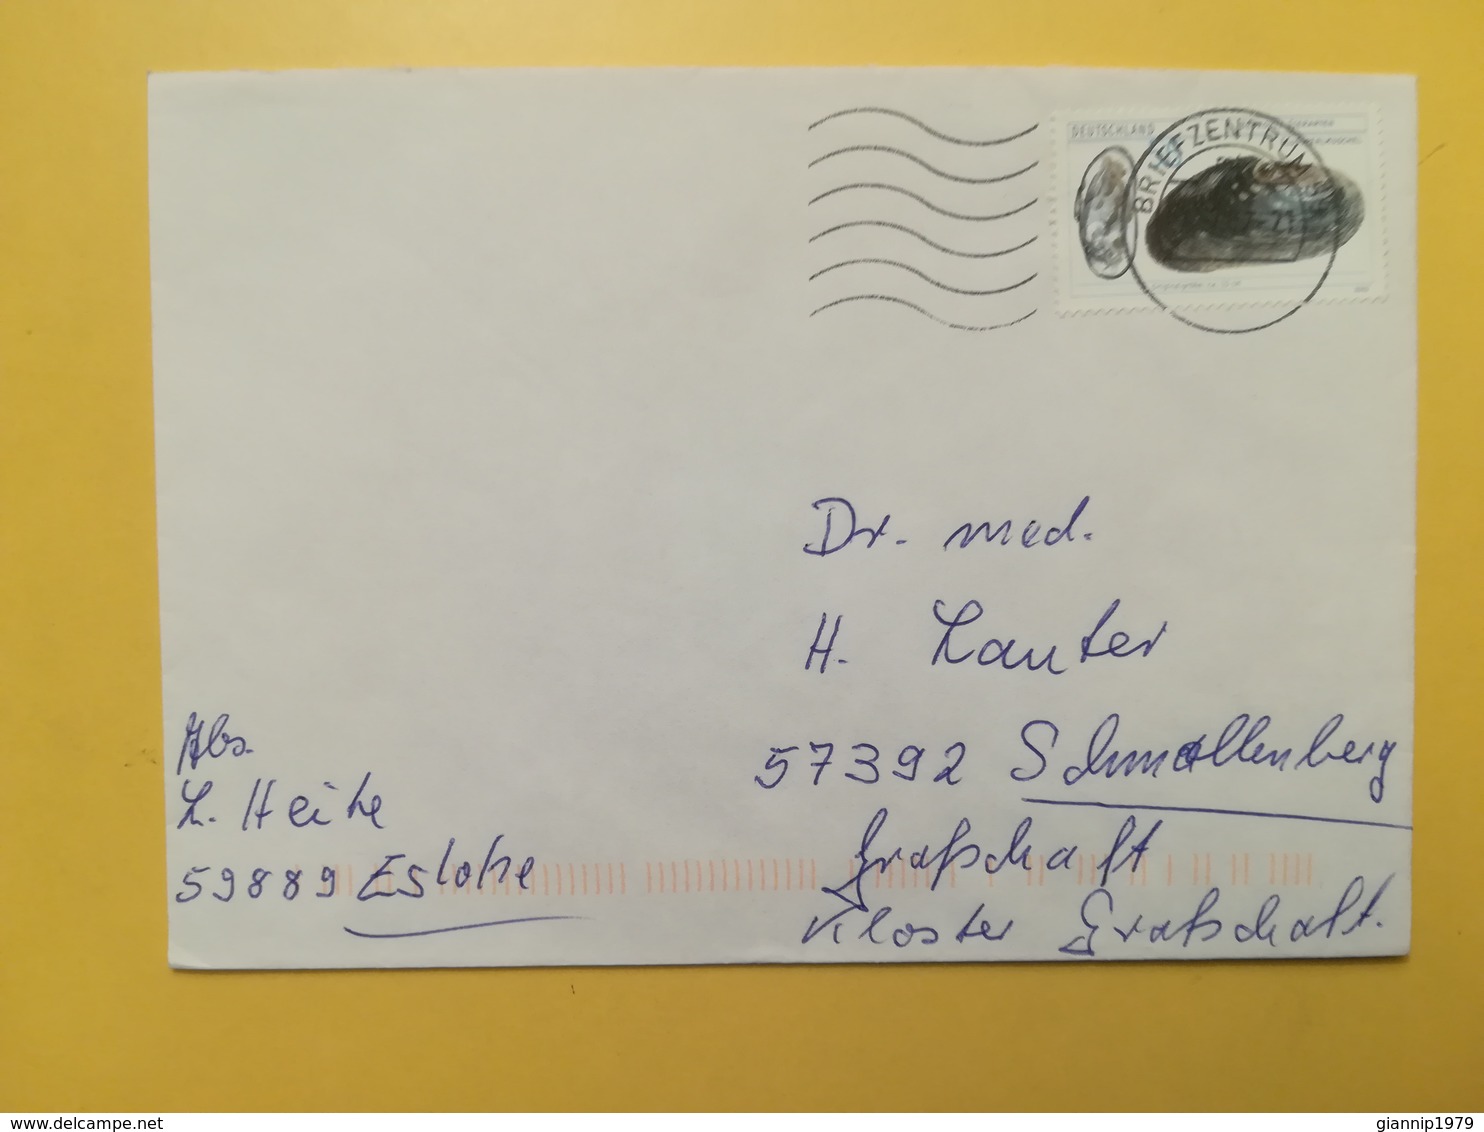 DEUTSCHLAND
BRIEFZENTRUM
Dr. med.
H. Lauter
57392 Schmallenberg
Grafschaft
Kloster Grafschaft.
Abs.
L. Heite
59889 Eslohe
delcampe.net
giannip1979